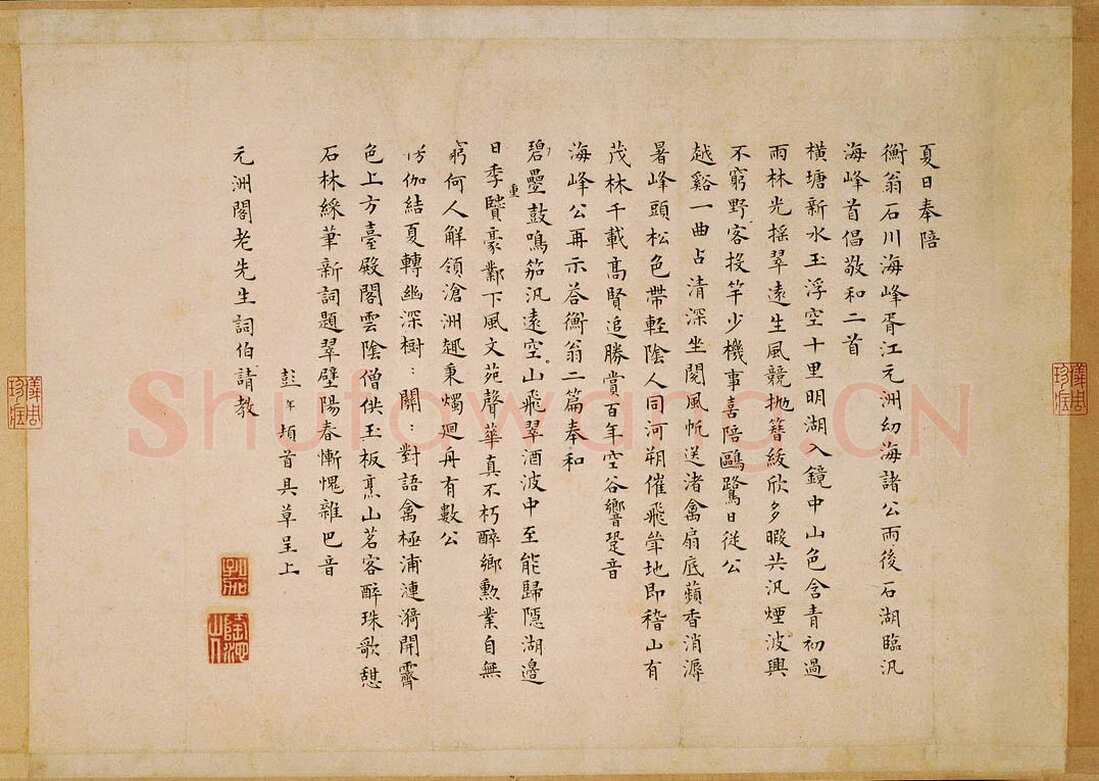 夏日奉陪
衡翁石川海峰胥江元洲幼海諸公雨後石湖臨汎
海峰首倡敬和二首
橫塘新水玉浮空十里明湖入鏡中山色含青初過
雨林光搖翠遠生風競拋簪綬欣多暇共汎煙波興
不窮野客投竿少機事喜陪鷗鷺日從公
越谿一曲占清深坐閱風帆送渚禽扇底蘋香消溽
暑峰頭松色帶輕陰人同河朔催飛斝地即稽山有
茂林千載高賢追勝賞百年空谷響跫音
海峰公再示荅衡翁二篇奉和
碧疊鼓鳴笳汎遠空山飛翠酒波中至能歸隱湖邊
重
日季豪鄴下風文苑聲華真不朽醉鄉勲業自無
窮何人解領滄洲趣秉燭迴舟有數公
伽結夏轉幽深樹:關:對語禽極浦漣漪開霽
色上方臺殿閣雲陰僧供玉板烹山茗客醉珠歌憩
石林綵筆新詞題翠壁陽春慚愧雜巴音
彭年頓首具草呈上
元洲閣老先生詞伯請教
孔加
隆池山人
儀周珍藏
儀周珍藏
Shufawang.CN